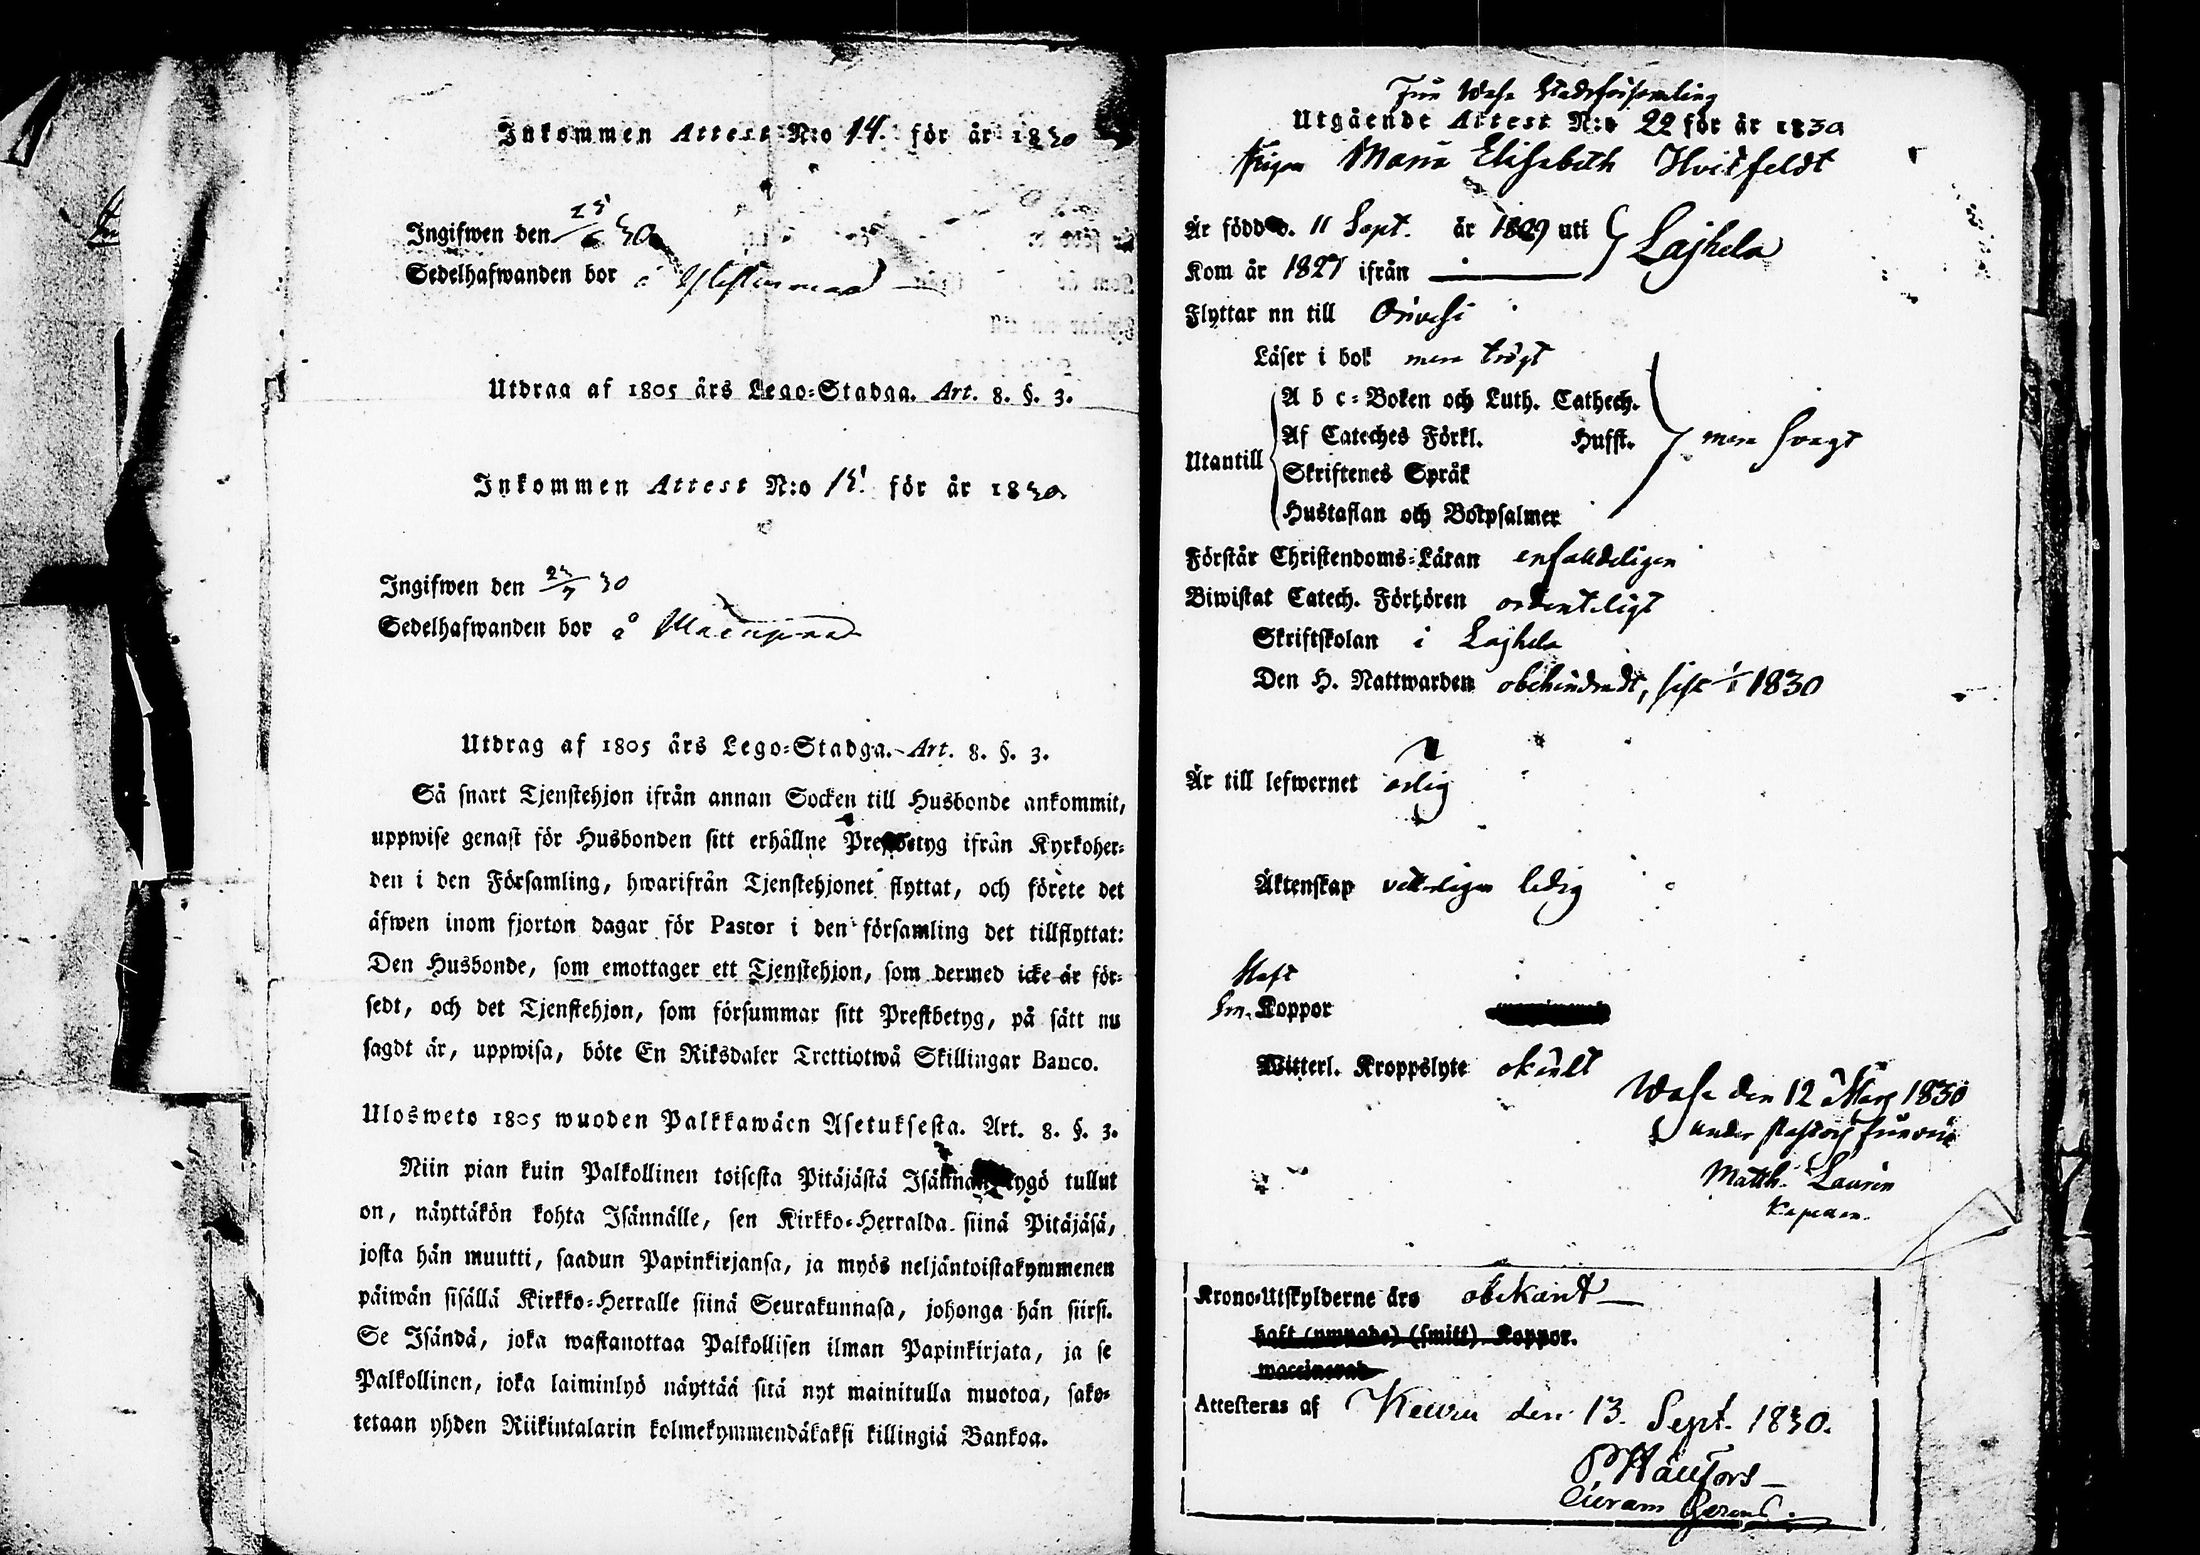 Inkommen Attest N:o 14. för år 1830
Ingifwen den 25/6 30
Sedelhafwanden bor å
Utdrag af 1805 års Lego=Stadga. Art. 8. §. 3.
Inkommen Attest N:o 15. för år 1830
Ingifwen den 30
Sedelhafwanden bor å
Utdrag af 1805 års Lego=Stadga. Art. 8. §. 3.
Så snart Tjenstehjon ifrån annan Socken till Husbonde ankommit,
uppwise genast för Husbonden sitt erhållne Prestbetyg ifrån Kyrkoher=
den i den Församling, hwarifrån Tjenstehjonet flyttat, och förete det
äfwen inom fjorton dagar för Pastor i den församling det tillflyttat:
Den Husbonde, som emottager ett Tjenstehjon, som dermed icke är för=
sedt, och det Tjenstehjon, som försummar sitt Prestbetyg, på sätt nu
sagdt är, uppwisa, böte En Riksdaler Trettiotwå Skillingar Banco.
Ulosweto 1805 wuoden Palkkawäen Asetuksesta. Art. 8. §. 3.
Niin pian kuin Palkollinen toisesta Pitäjästä Isännän tygö tullut
on, näyttäkön kohta Isännälle, sen Kirkko=Herralda siinä Pitäjäsä,
josta hän muutti, saadun Papinkirjansa, ja myös neljäntoistakymmenen
päiwän sisällä Kirkko=Herralle siinä Seurakunnasa, johonga hän siirsi.
Se Isändä, joka wastanottaa Palkollisen ilman Papinkirjata, ja se
Palkollinen, joka laiminlyö näyttää sitä nyt mainitulla muotoa, sako=
tetaan yhden Riikintalarin kolmekymmendäkaksi killingiä Bankoa.
Från Wasa Stadsförsamling
Utgående Attest N:o 22 för år 1830
Pigan Maria Elisabeth Hvitfeldt
Är född d. 11 Sept. år 1809 uti } Lajhela
Kom år 1827 ifrån
Flyttar nn till Orivesi
Läser i bok men trögt
A b c=Boken och Luth. Cathech.
Af Cateches Förkl. Hufst. men svagt
Utantill
Skriftenes Språk
Hustaflan och Botpsalmer
Förstår Christendoms=Läran enfaldeligen
Biwistat Catech. Förhören ordenteligt
Skriftskolan i Lajhela
Den H. Nattwarden obehindradt, sist 1830
Är till lefwernet ärlig
Äktenskap vitterligen ledig
Haft
Sm. Koppor
Witterl. Kroppslyte okändt
Wasa den 12 Mars 1830
under Pastors frånvaro
Matth. Laurén
Kapellan.
Krono=Utskylderne äro obekant
haft (ympade) (smitt) Koppor.
waccinerad
Attesteras af Keuru den 13. Sept. 1830.
Curam Gerens.